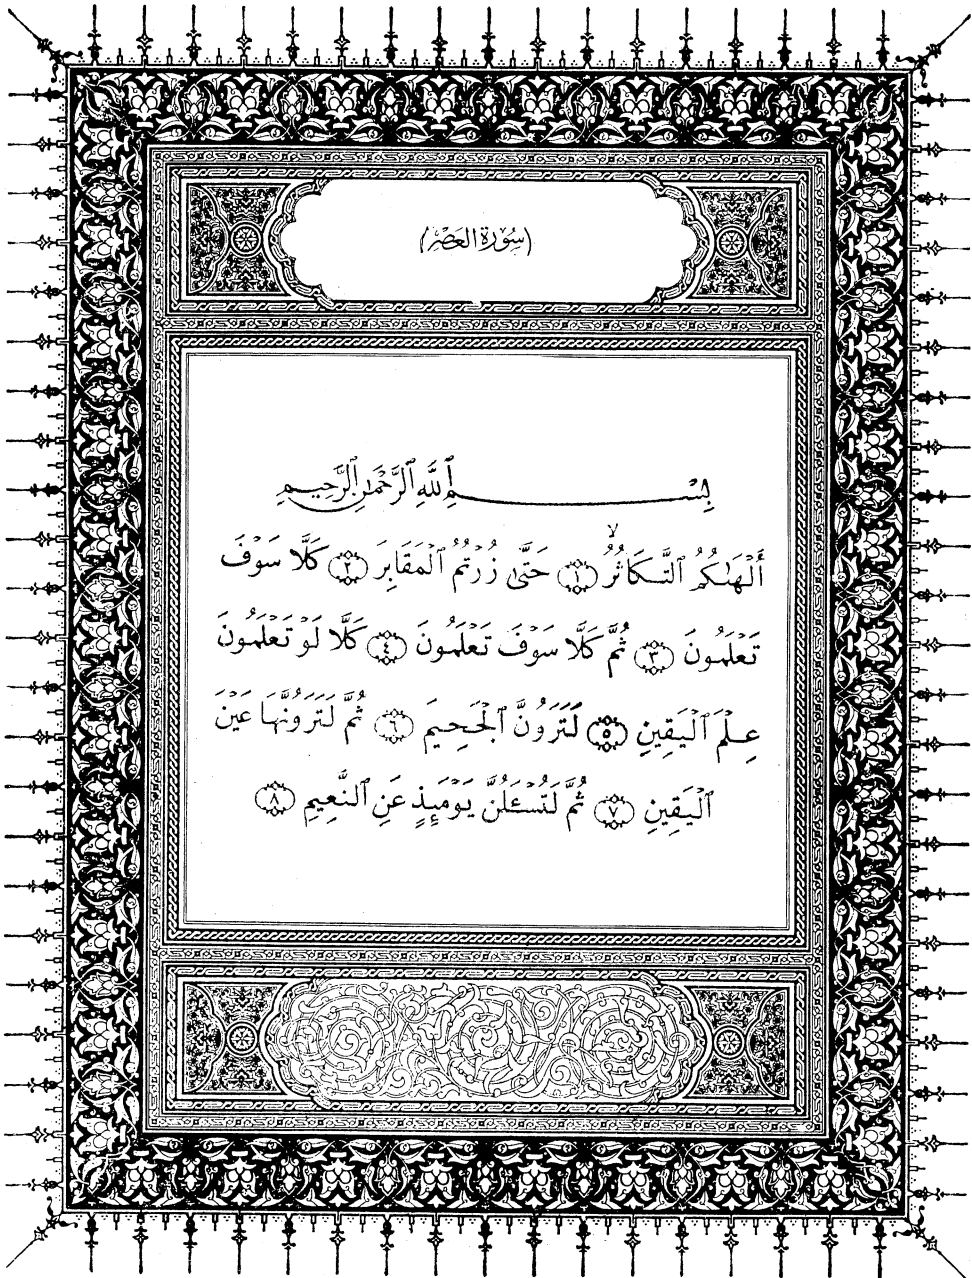 (سُورَة العَصْر)
بِسْمِ ٱللَّهِ ٱلرَّحْمَٰنِ ٱلرَّحِيمِ
أَلْهَىٰكُمُ ٱلتَّكَاثُرُ ۙ ١ حَتَّىٰ زُرْتُمُ ٱلْمَقَابِرَ ٢ كَلَّا سَوْفَ
تَعْلَمُونَ ٣ ثُمَّ كَلَّا سَوْفَ تَعْلَمُونَ ٤ كَلَّا لَوْ تَعْلَمُونَ
عِلْمَ ٱلْيَقِينِ ٥ لَتَرَوُنَّ ٱلْجَحِيمَ ٦ ثُمَّ لَتَرَوُنَّهَا عَيْنَ
ٱلْيَقِينِ ٧ ثُمَّ لَتُسْـَٔلُنَّ يَوْمَئِذٍ عَنِ ٱلنَّعِيمِ ٨